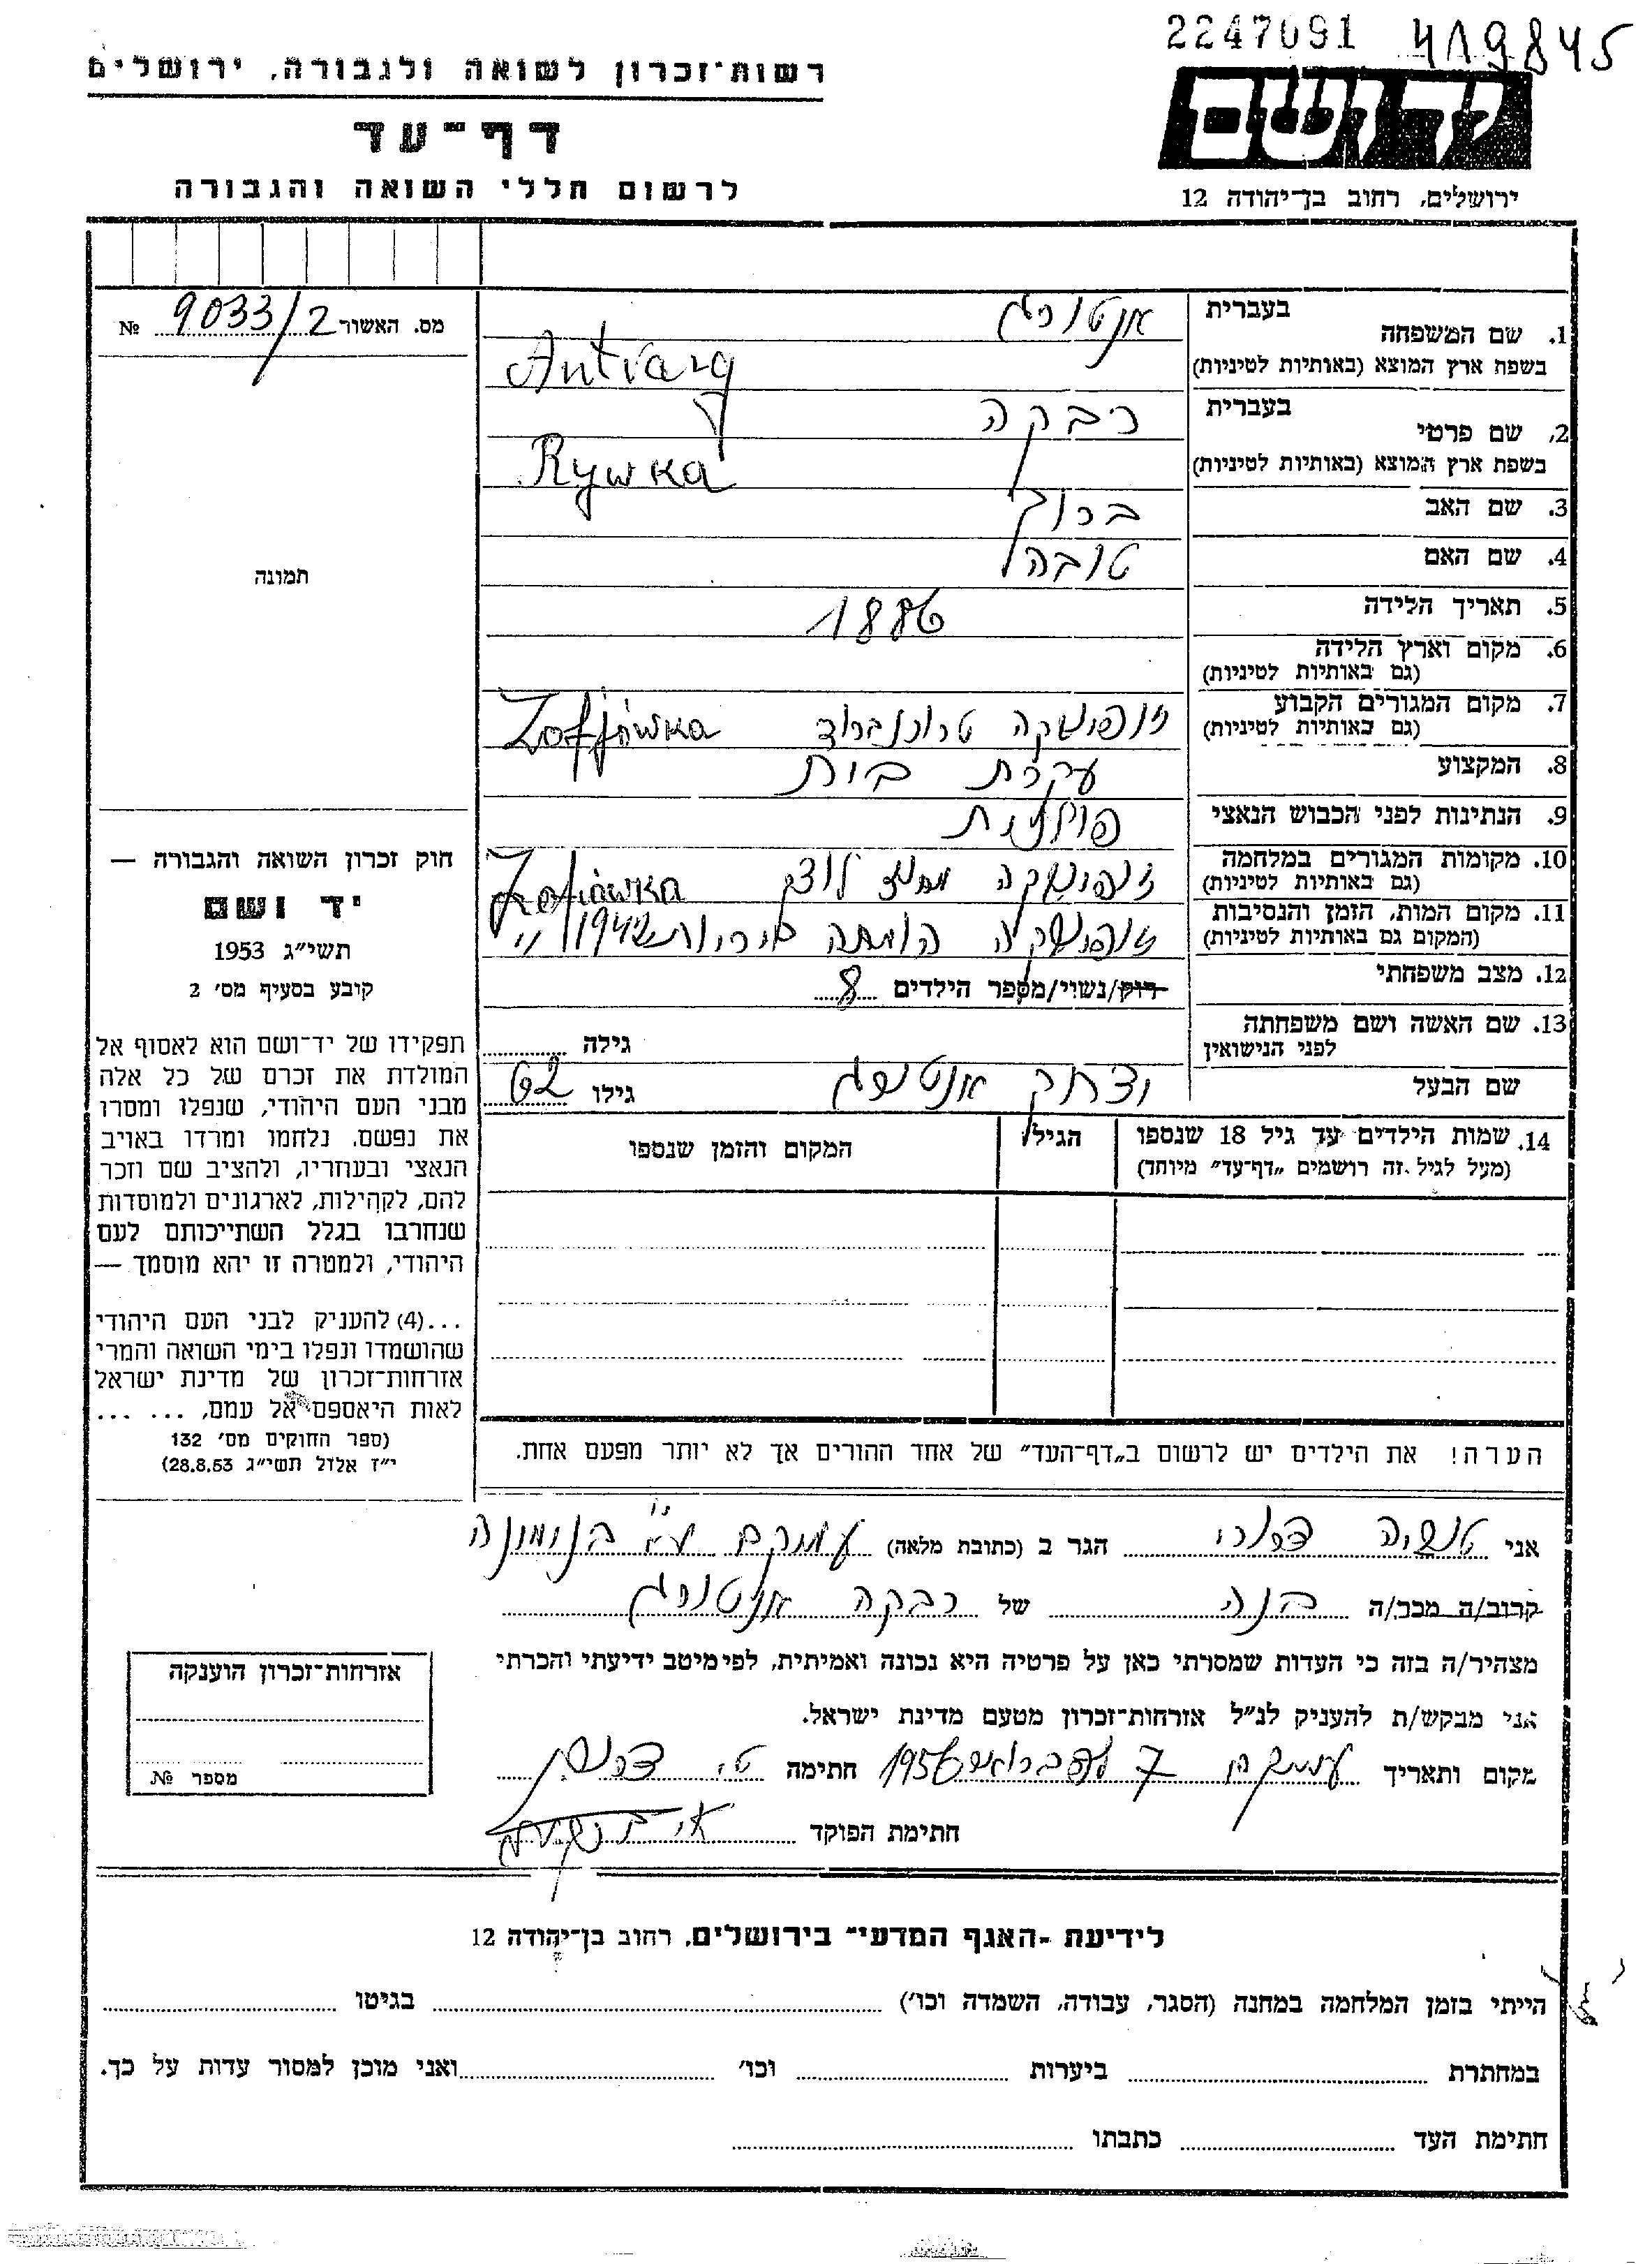 2247091 419845
רשות־זכרון לשואה ולגבורה, ירושלים
דף־עד
לרשום חללי השואה והגבורה
יד ושם
ירושלים, רחוב בן־יהודה 12
מס. האשור 9033/2 №
תמונה
חוק זכרון השואה והגבורה —
יד ושם
תשי״ג 1953
קובע בסעיף מס׳ 2
תפקידו של יד־ושם הוא לאסוף אל
המולדת את זכרם של כל אלה
מבני העם היהודי, שנפלו ומסרו
את נפשם, נלחמו ומרדו באויב
הנאצי ובעוזריו, ולהציב שם וזכר
להם, לקהילות, לארגונים ולמוסדות
שנחרבו בגלל השתייכותם לעם
היהודי, ולמטרה זו יהא מוסמך —
...(4) להעניק לבני העם היהודי
שהושמדו ונפלו בימי השואה והמרי
אזרחות־זכרון של מדינת ישראל
לאות היאספם אל עמם, ... ...
(ספר החוקים מס׳ 132
י״ז אלול תשי״ג 28.8.53)
1. שם המשפחה
בעברית אנטורג
בשפת ארץ המוצא (באותיות לטיניות) Antvarg
2. שם פרטי
בעברית רבקה
בשפת ארץ המוצא (באותיות לטיניות) Rywka
3. שם האב ברוך
4. שם האם טובה
5. תאריך הלידה 1886
6. מקום וארץ הלידה
(גם באותיות לטיניות)
7. מקום המגורים הקבוע זופיובקה טרוכנברוד Zofjówka
(גם באותיות לטיניות)
8. המקצוע עקרת בית
9. הנתינות לפני הכבוש הנאצי פולנית
10. מקומות המגורים במלחמה זופיובקה מחוז לוצק Zofiówka
(גם באותיות לטיניות)
11. מקום המות, הזמן והנסיבות זופיובקה הומתה ביריות 1942
(המקום גם באותיות לטיניות)
12. מצב משפחתי רוק/נשוי/מספר הילדים 8
13. שם האשה ושם משפחתה גילה
לפני הנישואין
שם הבעל יצחק אנטורג גילו 62
14. שמות הילדים עד גיל 18 שנספו הגיל המקום והזמן שנספו
(מעל לגיל זה רושמים „דף־עד״ מיוחד)
הערה! את הילדים יש לרשום ב„דף־העד״ של אחד ההורים אך לא יותר מפעם אחת.
אני טוביה דרורי הגר ב (כתובת מלאה) ע״י בנימינה
קרוב/ה מכר/ה בנה של רבקה אנטורג
מצהיר/ה בזה כי העדות שמסרתי כאן על פרטיה היא נכונה ואמיתית, לפי מיטב ידיעתי והכרתי
אני מבקש/ת להעניק לנ״ל אזרחות־זכרון מטעם מדינת ישראל.
מקום ותאריך 7 לפברואר 1956 חתימה ט. דרורי
חתימת הפוקד
אזרחות־זכרון הוענקה
מספר №
לידיעת ־האגף המדעי־ בירושלים, רחוב בן־יהודה 12
הייתי בזמן המלחמה במחנה (הסגר, עבודה, השמדה וכו׳) בגיטו
במחתרת ביערות וכו׳ ואני מוכן למסור עדות על כך.
חתימת העד כתבתו